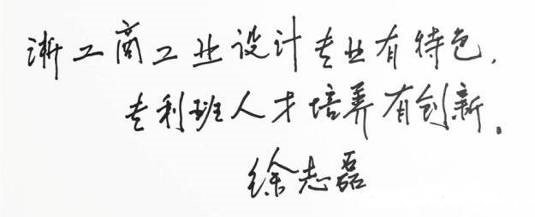 浙工商工业设计专业有特色，
专利班人才培养有创新。
徐志磊